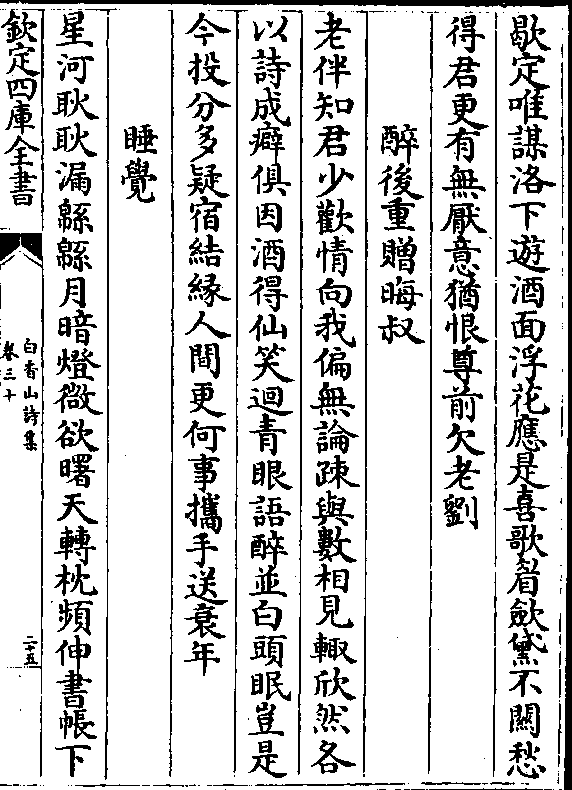 歇定唯謀洛下遊酒面浮花應是喜歌眉斂黛不關愁
得君更有無厭意猶恨尊前欠老劉
醉後重贈晦叔
老伴知君少歡情向我偏無論疎與數相見輙欣然各
以詩成癖俱因酒得仙笑迴青眼語醉並白頭眠豈是
今投分多疑宿結緣人間更何事攜手送衰年
睡覺
星河耿耿漏緜緜月暗燈微欲曙天轉枕頻伸書帳下
欽定四庫全書
白香山詩集
卷三十
二十五